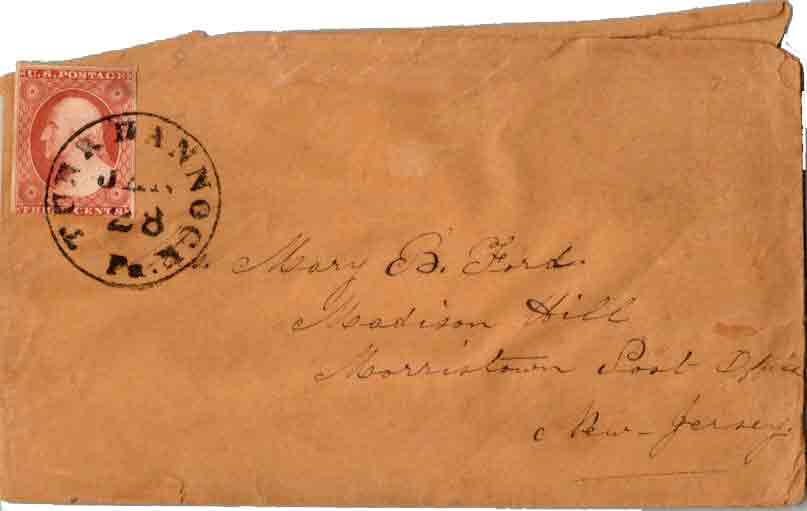 U.S. POSTAGE
THREE CENTS
TUNKHANNOCK
JAN
28
Pa.
Mary B. Ford.
Madison Hill
Morristown Post Office
New-Jersey.